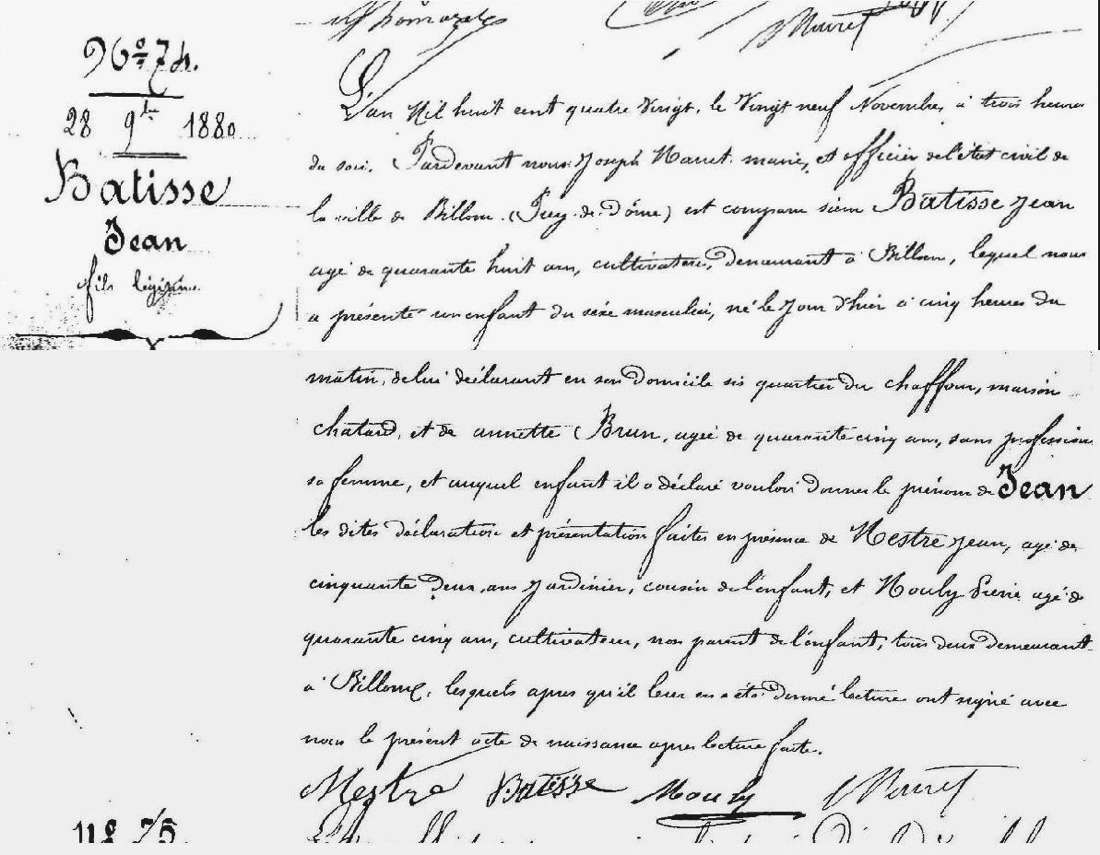 Nº 74.
28 9bre 1880
Batisse
Jean
fils légitime.
L'an Mil huit cent quatre Vingt, le Vingt neuf Novembre, à trois heures
du soir. Pardevant nous Joseph maire, et officier de l'état civil de
la ville de Billom (Puy-de-Dôme) est comparu sieur Batisse Jean
agé de quarante huit ans, cultivateur, demeurant à Billom, lequel nous
a présenté un enfant du séxe masculin, né le Jour d'hier à cinq heures du
matin, de lui déclarant en son Domicile sis quartier du chaffour, maison
chatard, et de annette Brun, agée de quarante cinq ans, sans profession
sa femme, et auquel enfant il a déclaré vouloir donner le prénom de Jean
les dites déclaration et présentation faites en présence de Mestre Jean, agé de
cinquante Deux ans Jardinier, cousin de l'enfant, et Mouly Pierre agé de
quarante cinq ans, cultivateur, non parent de l'enfant, tous deux demeurant
à Billom, lesquels apres qu'il leur en a été Donné lecture ont signé avec
nous le présent acte de naissance apres lecture faite.
Mestre Batisse Mouly
Nº 75.